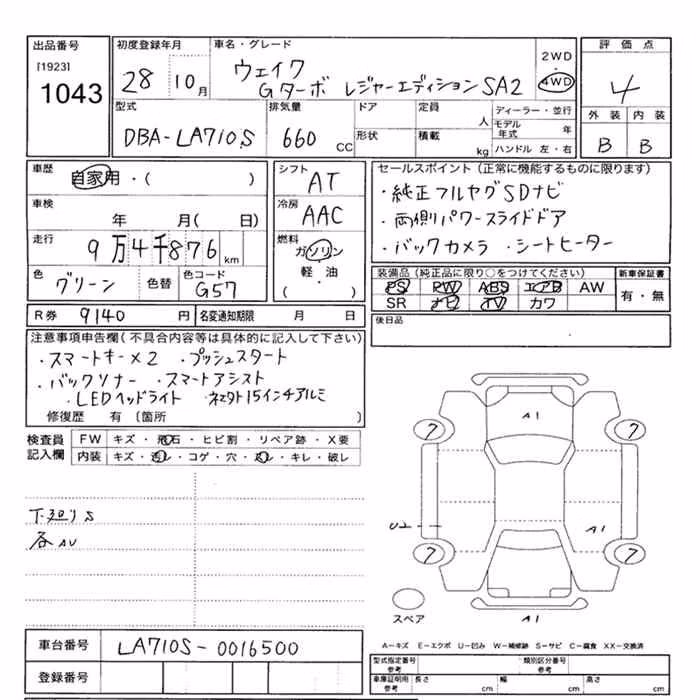 出品番号 初度登録年月 車名・グレード 評価点
[1923]
1043
28 10月 ウェイク 2WD
Gターボ レジャーエディション SA2 4WD 4
型式 排気量 ドア 定員 ディーラー・並行 外装 内装
DBA-LA710S 660 CC 人 モデル年式 年 B B
形状 積載 kg ハンドル 左・右
車歴 自家用・( ) シフト AT
セールスポイント(正常に機能するものに限ります)
・純正フルセグSDナビ
・両側パワースライドドア
・バックカメラ ・シートヒーター
車検 年 月( 日) 冷房 AAC
走行 9万4千876km 燃料 ガソリン
軽・油
( )
色 グリーン 色替 色コード G57
装備品(純正品に限り○をつけてください) 新車保証書
PS PW ABS エアB AW 有・無
SR ナビ TV カワ
R券 9140円 名変通知期限 月 日
後日品
注意事項申告欄(不具合内容等は具体的に記入して下さい)
・スマートキー×2 ・プッシュスタート
・バックソナー ・スマートアシスト
・LEDヘッドライト ・ネオクト15インチアルミ
修復歴 有〔箇所 〕
検査員記入欄 FW キズ・飛石・ヒビ割・リペア跡・X要
内装 キズ・汚レ・コゲ・穴・スレ・キレ・破レ
A1
7 7
下廻りS
各AU
U2 A1
7 7
スペア A1
車台番号 LA710S-0016500
登録番号
A-キズ E-エクボ U-凹み W-補修跡 S-サビ C-腐食 XX-交換済
型式指定番号 類別区分番号
参考
車庫証明用 長さ 幅 高さ
参考 cm cm cm